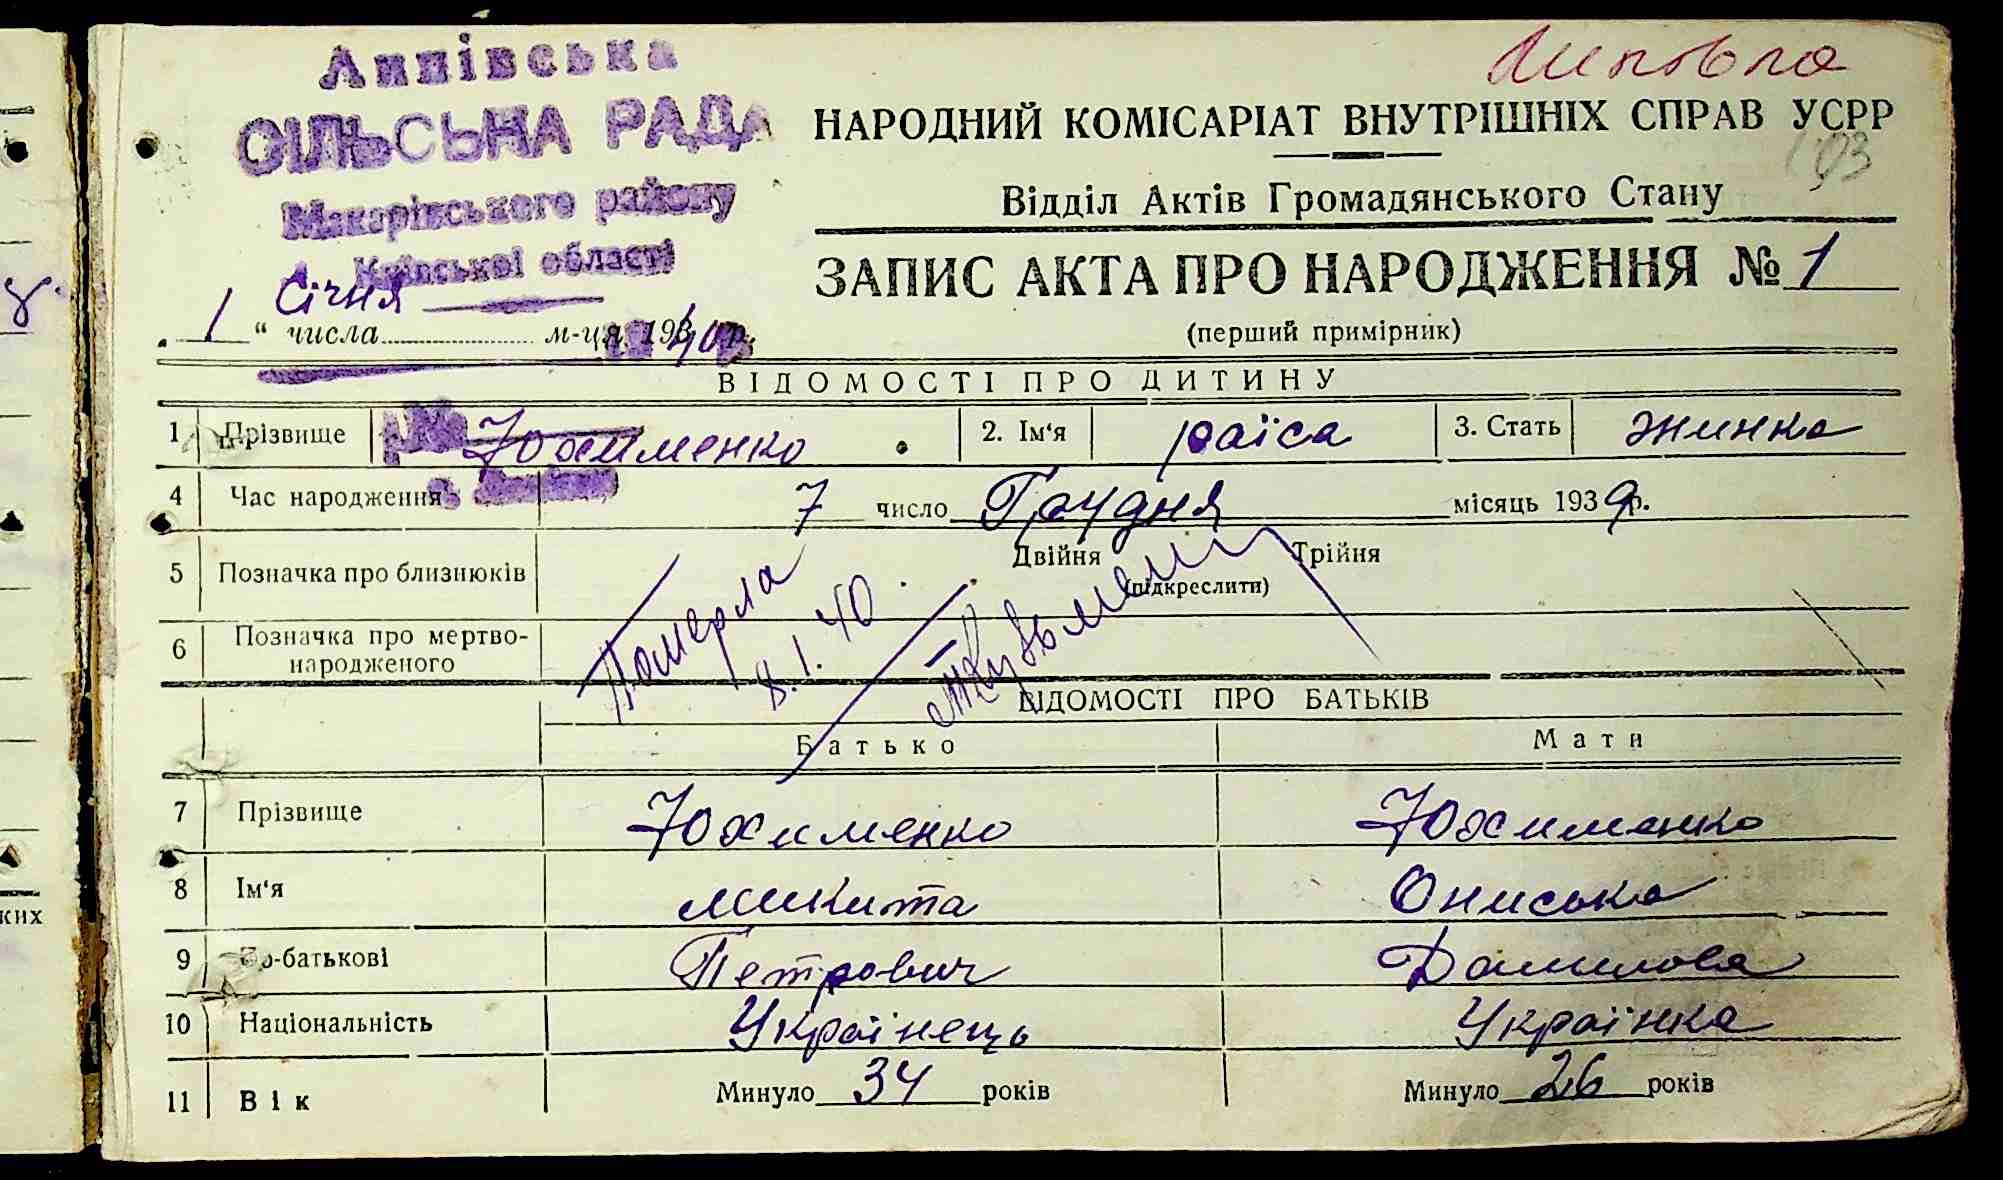 Липівка
Липівська
СІЛЬСЬКА РАДА
Макарівського району
Київської області
НАРОДНИЙ КОМІСАРІАТ ВНУТРІШНІХ СПРАВ УСРР
103
Відділ Актів Громадянського Стану
ЗАПИС АКТА ПРО НАРОДЖЕННЯ № 1
(перший примірник)
1 “ числа Січня м-ця 1940 р.
ВІДОМОСТІ ПРО ДИТИНУ
1 Прізвище Юхименко 2. Ім'я раїса 3. Стать жинка
4 Час народження 7 число Грудня місяць 1939 р.
5 Позначка про близнюків Двійня Трійня
(підкреслити)
6 Позначка про мертво-
народженого
Померла
8.1.40
ВІДОМОСТІ ПРО БАТЬКІВ
Батько Мати
7 Прізвище Юхименко Юхименко
8 Ім'я микита Ониська
9 По-батькові Петрович Данилова
10 Національність Українець Українка
11 Вік Минуло 34 років Минуло 26 років
ких